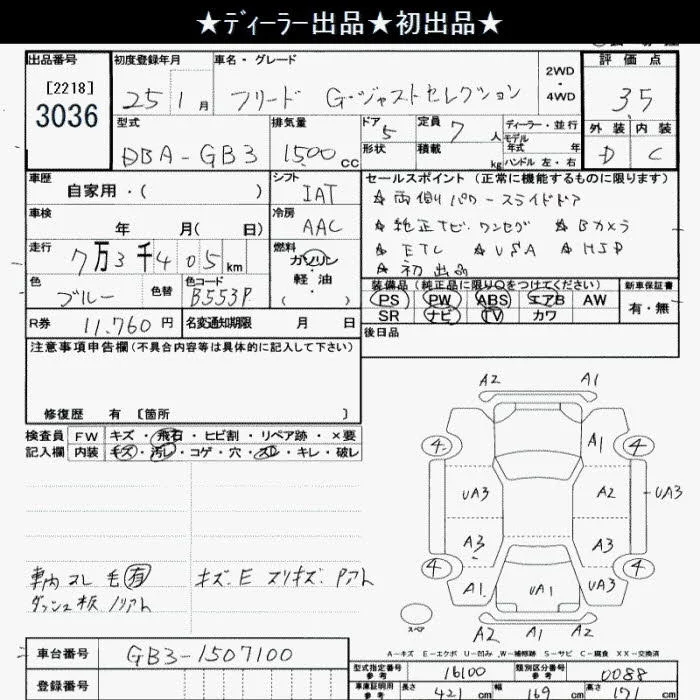 ★ディーラー出品★初出品★
出品番号 初度登録年月 車名・グレード 2WD・4WD 評価点
[2218]
3036
25 1月 フリード G・ジャストセレクション 3.5
型式 排気量 ドア 5 定員 7人 ディーラー・並行 外装 内装
DBA-GB3 1500cc 形状 積載 kg モデル年式 年 ハンドル 左・右 D C
車歴 シフト セールスポイント(正常に機能するものに限ります)
自家用・( ) IAT
☆両側パワースライドドア
車検 冷房
年 月( 日) AAC
☆純正TV.ワンセグ ☆Bカメラ
☆ETC ☆VSA ☆HSR
☆初出品
走行 7万3千405km 燃料 ガソリン・軽油・( )
色 ブルー 色替 色コード B553P
装備品(純正品に限り○をつけてください) 新車保証書
PS PW ABS エアB AW 有・無
SR ナビ TV カワ
R券 11,760円 名変通知期限 月 日
後日品
注意事項申告欄(不具合内容等は具体的に記入して下さい)
修復歴 有 [箇所 ]
検査員 FW キズ・飛石・ヒビ割・リペア跡・×要
記入欄 内装 キズ・汚レ・コゲ・穴・スレ・キレ・破レ
A2 A1
4 A1 4
UA3 A2 UA3
A3 A3
4 A1 UA1 UA3 4
スペア A2 A1 A2
車内スレ毛有 キズ.E スリキズ.Pアト
ダッシュ板ノリアト
A-キズ E-エクボ U-凹み W-補修跡 S-サビ C-腐食 XX-交換済
車台番号 GB3-1507100
登録番号
型式指定番号 参考 16100 類別区分番号 参考 0088
車庫証明用 参考 長さ 421cm 幅 169cm 高さ 171cm